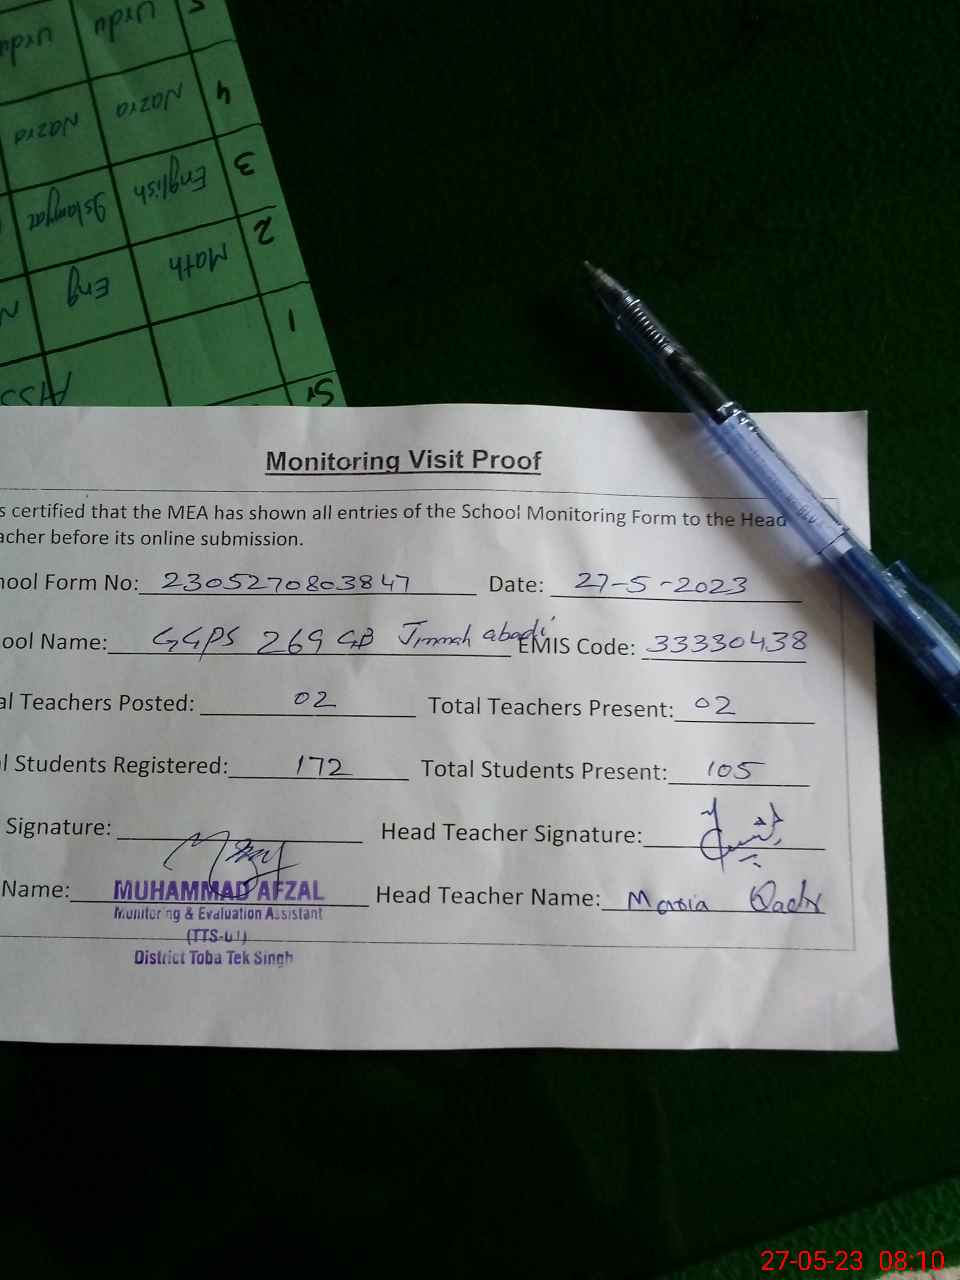 Urdu Urdu 5
Nazra Nazra 4
Islamyat English 3
Eng Math 2
1
Sr
Monitoring Visit Proof
s certified that the MEA has shown all entries of the School Monitoring Form to the Head
acher before its online submission.
hool Form No: 2305270803847 Date: 27-5-2023
ool Name: GGPS 269 GB Jinnah abadi EMIS Code: 33330438
al Teachers Posted: 02 Total Teachers Present: 02
l Students Registered: 172 Total Students Present: 105
Signature: Head Teacher Signature:
Name: MUHAMMAD AFZAL Head Teacher Name: Maria
Monitoring & Evaluation Assistant
(TTS-01)
District Toba Tek Singh
27-05-23 08:10